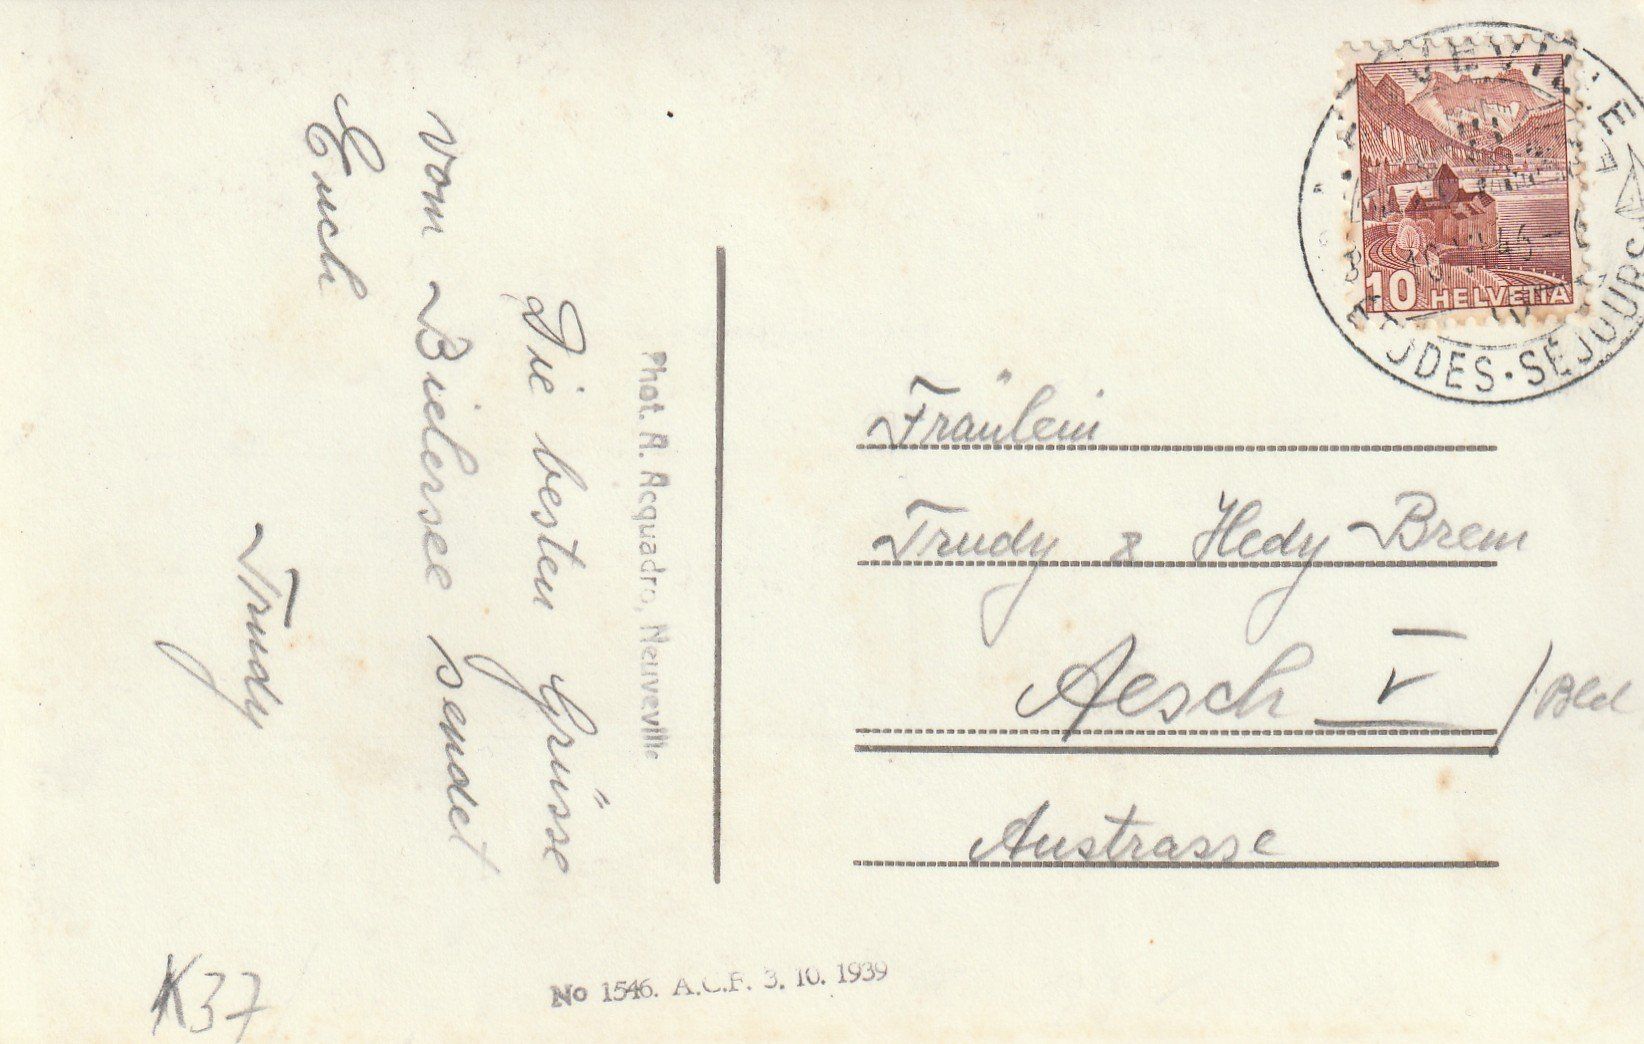 Die besten Grüsse
vom Bielersee sendet
Euch
Trudy
Phot. A. Acquadro, Neuveville
Fräulein
Trudy & Hedy Brem
Aesch / Bld
Austrasse
10 HELVETIA
ÉTUDES · SÉJOURS
K37
No 1546. A.C.F. 3. 10. 1939